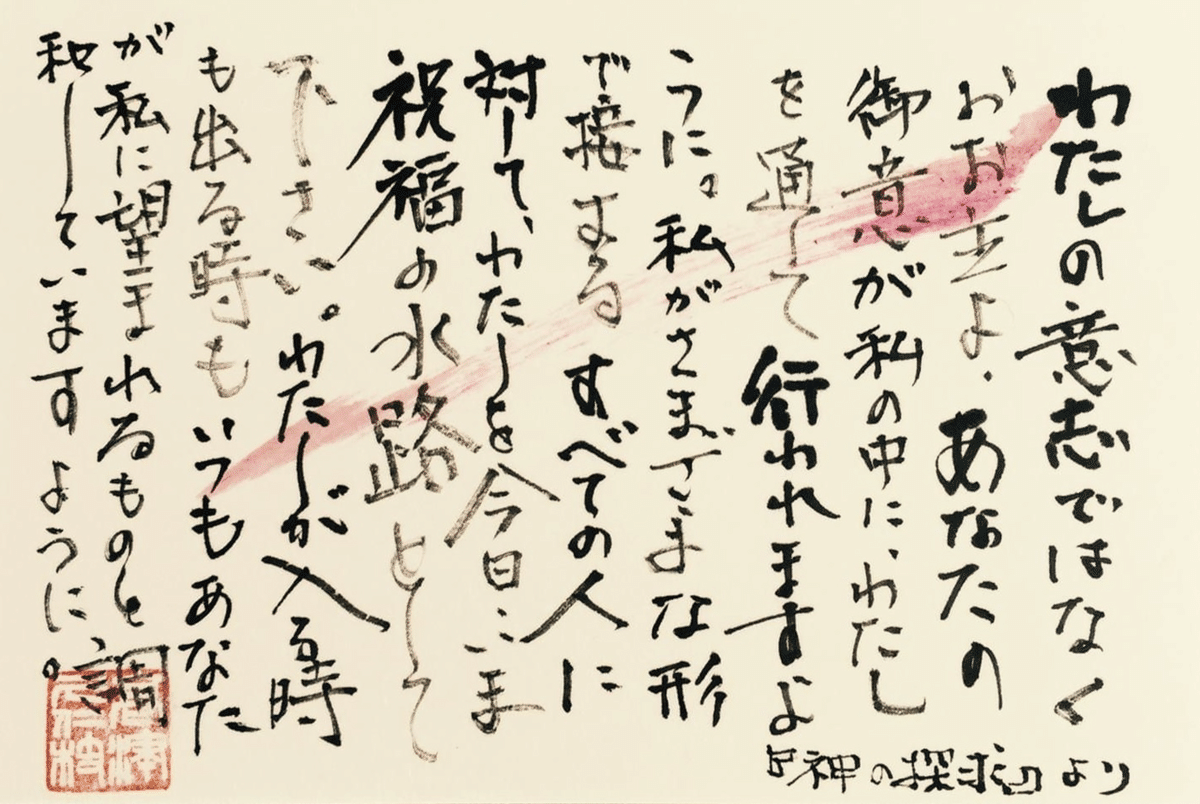 わたしの意志ではなく
おお主よ、あなたの
御意が私の中に、わたし
を通して行われますよ
うに。私がさまざまな形
で接するすべての人に
対して、わたしを今日いま
祝福の水路として
下さい。わたしが入る時
も出る時もいつもあなた
が私に望まれるものと調
和していますように。
『神の探求』より